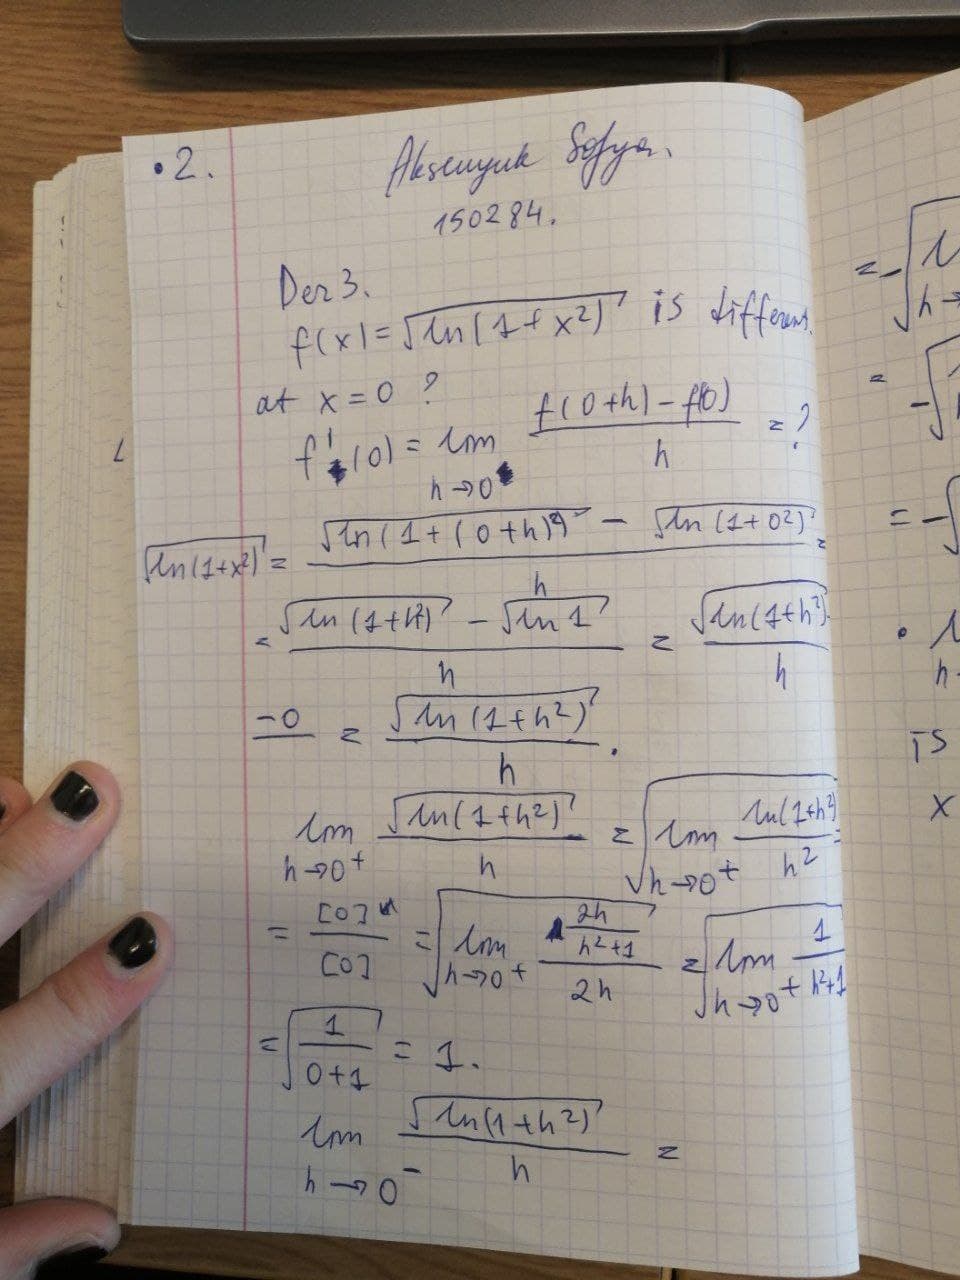 • 2.
Aksenyuk Sofya.
150284.
Der 3.
f(x) = √ln(1+x²) is different.
at x = 0 ?
f'(0) = lim h→0 (f(0+h) - f(0))/h = ?
√ln(1+x²) = (√ln(1+(0+h)²) - √ln(1+0²))/h =
= (√ln(1+h²) - √ln 1)/h = √ln(1+h²)
-0 = √ln(1+h²)/h .
lim h→0⁺ √ln(1+h²)/h = √(lim h→0⁺ ln(1+h²)/h²) =
= [0]/[0] = √(lim h→0⁺ (2h/(h²+1))/2h) = √(lim h→0⁺ 1/(h²+1))
= √(1/(0+1)) = 1.
lim h→0⁻ √ln(1+h²)/h =
= -√
h→
= -√
= -√
•
h
is
x